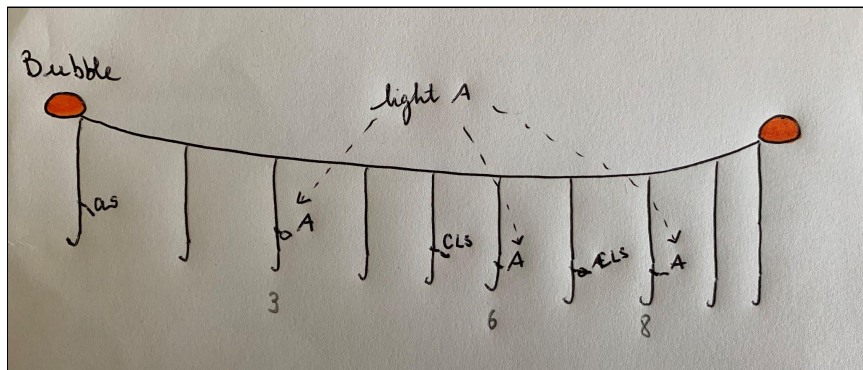 Bubble
light A
as
A
CLS
A
ÆLS
A
3
6
8